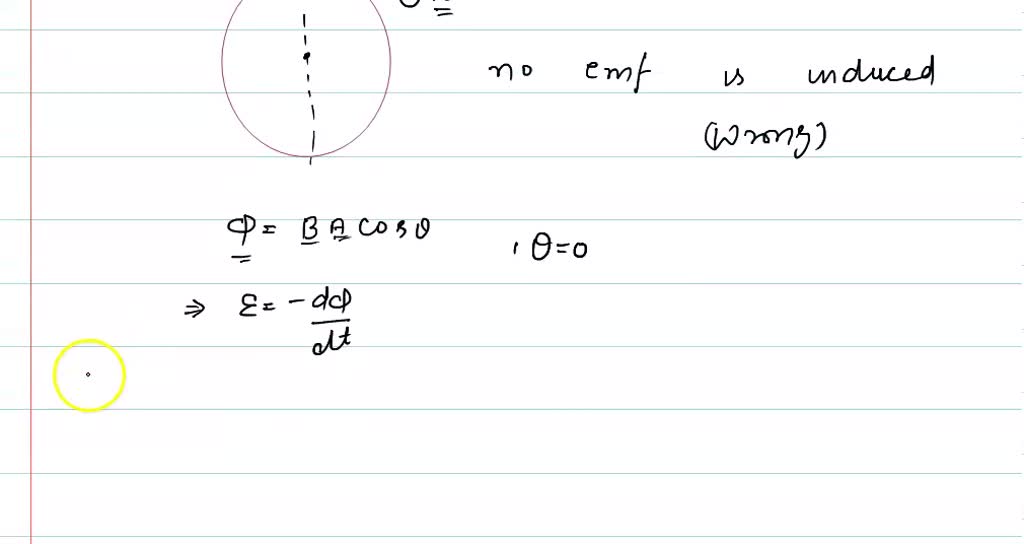 no emf is induced
(wrong)
Φ = B A cos θ , θ = 0
⇒ ε = - dΦ/dt